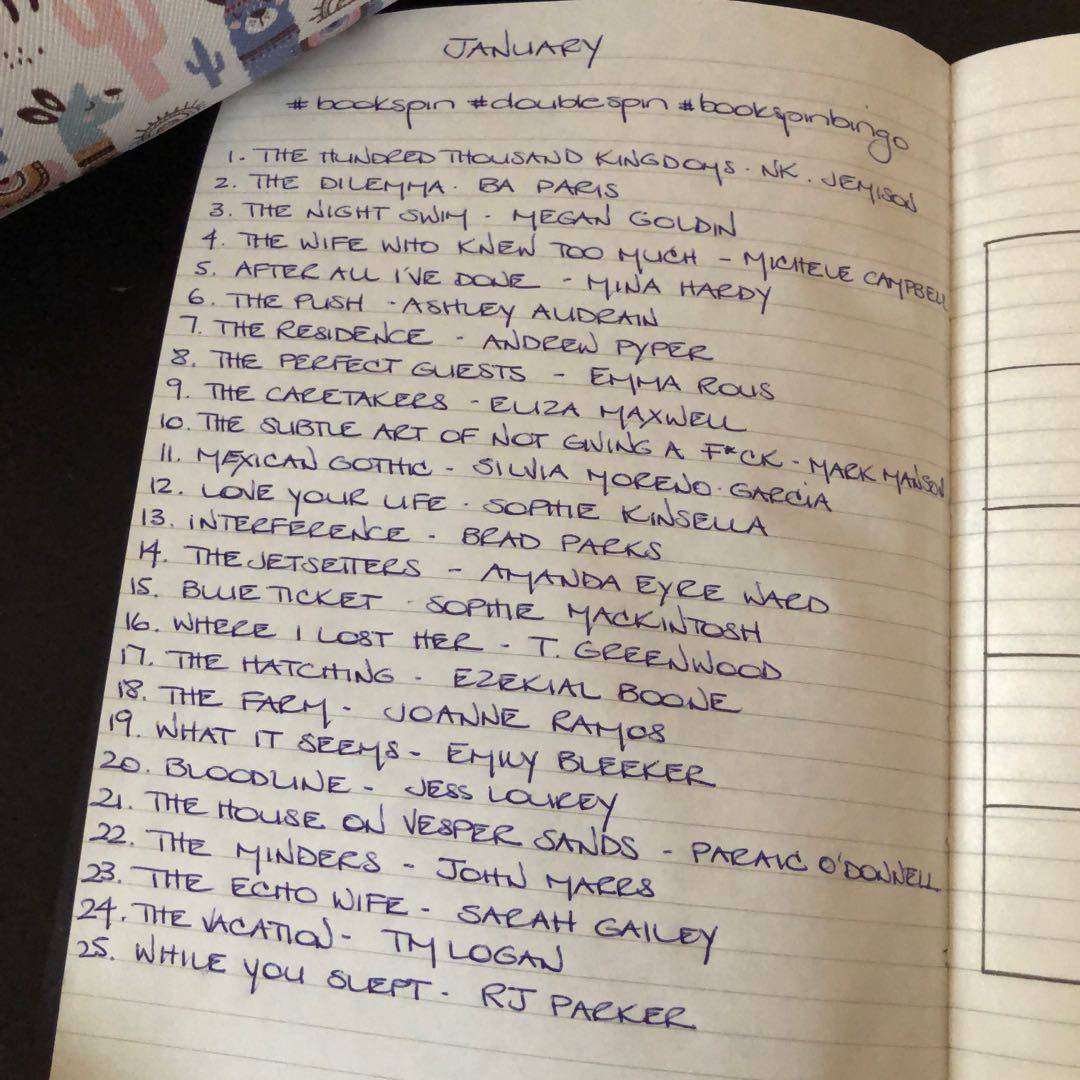 JANUARY
#bookspin #doublespin #bookspinbingo
1. THE HUNDRED THOUSAND KINGDOMS. NK. JEMISON
2. THE DILEMMA. BA PARIS
3. THE NIGHT SWIM - MEGAN GOLDIN
4. THE WIFE WHO KNEW TOO MUCH - MICHELE CAMPBELL
5. AFTER ALL I'VE DONE - MINA HARDY
6. THE PUSH - ASHLEY AUDRAIN
7. THE RESIDENCE - ANDREW PYPER
8. THE PERFECT GUESTS - EMMA ROUS
9. THE CARETAKERS - ELIZA MAXWELL
10. THE SUBTLE ART OF NOT GIVING A F*CK - MARK MANSON
11. MEXICAN GOTHIC - SILVIA MORENO-GARCIA
12. LOVE YOUR LIFE - SOPHIE KINSELLA
13. INTERFERENCE - BRAD PARKS
14. THE JETSETTERS - AMANDA EYRE WARD
15. BLUE TICKET - SOPHIE MACKINTOSH
16. WHERE I LOST HER - T. GREENWOOD
17. THE HATCHING - EZEKIAL BOONE
18. THE FARM - JOANNE RAMOS
19. WHAT IT SEEMS - EMILY BLEEKER
20. BLOODLINE - JESS LOUREY
21. THE HOUSE ON VESPER SANDS - PARAIC O'DONNELL
22. THE MINDERS - JOHN MARRS
23. THE ECHO WIFE - SARAH GAILEY
24. THE VACATION - TM LOGAN
25. WHILE YOU SLEPT - RJ PARKER